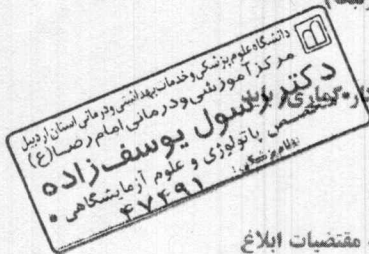 دانشگاه علوم پزشکی و خدمات بهداشتی و درمانی استان اردبیل
مرکز آموزشی و درمانی امام رضا (ع)
دکتر رسول یوسف‌زاده
متخصص پاتولوژی و علوم آزمایشگاهی
نظام پزشکی: ۴۷۴۹۱
مقتضیات ابلاغ